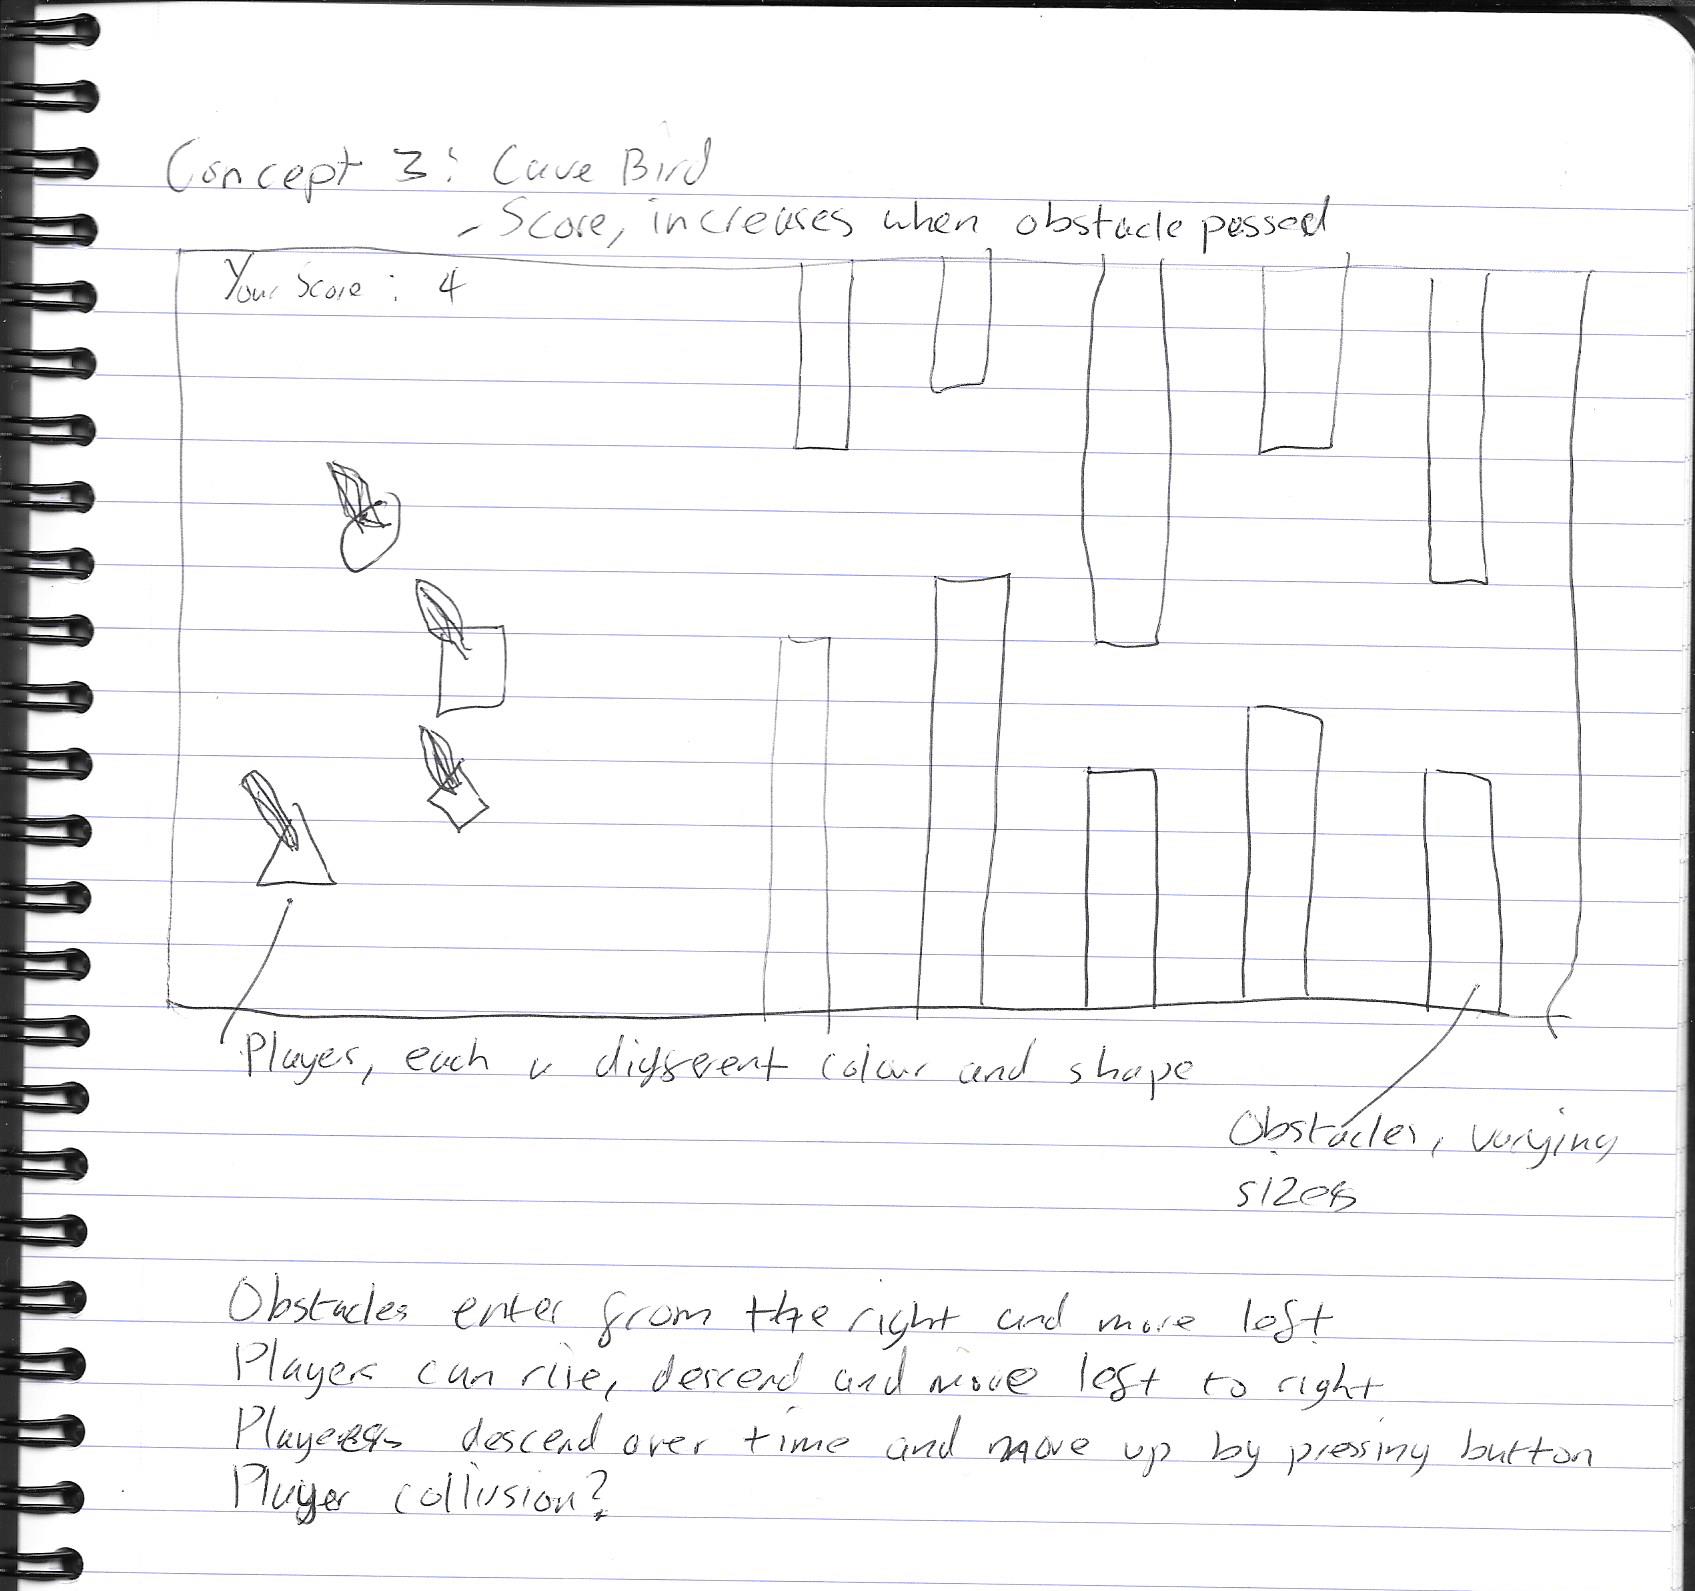 Concept 3: Cave Bird
- Score, increases when obstacle passed
Your Score: 4
Player, each a different colour and shape
Obstacles, varying
sizes
Obstacles enter from the right and move left
Players can rise, descend and move left to right
Players descend over time and move up by pressing button
Player collision?